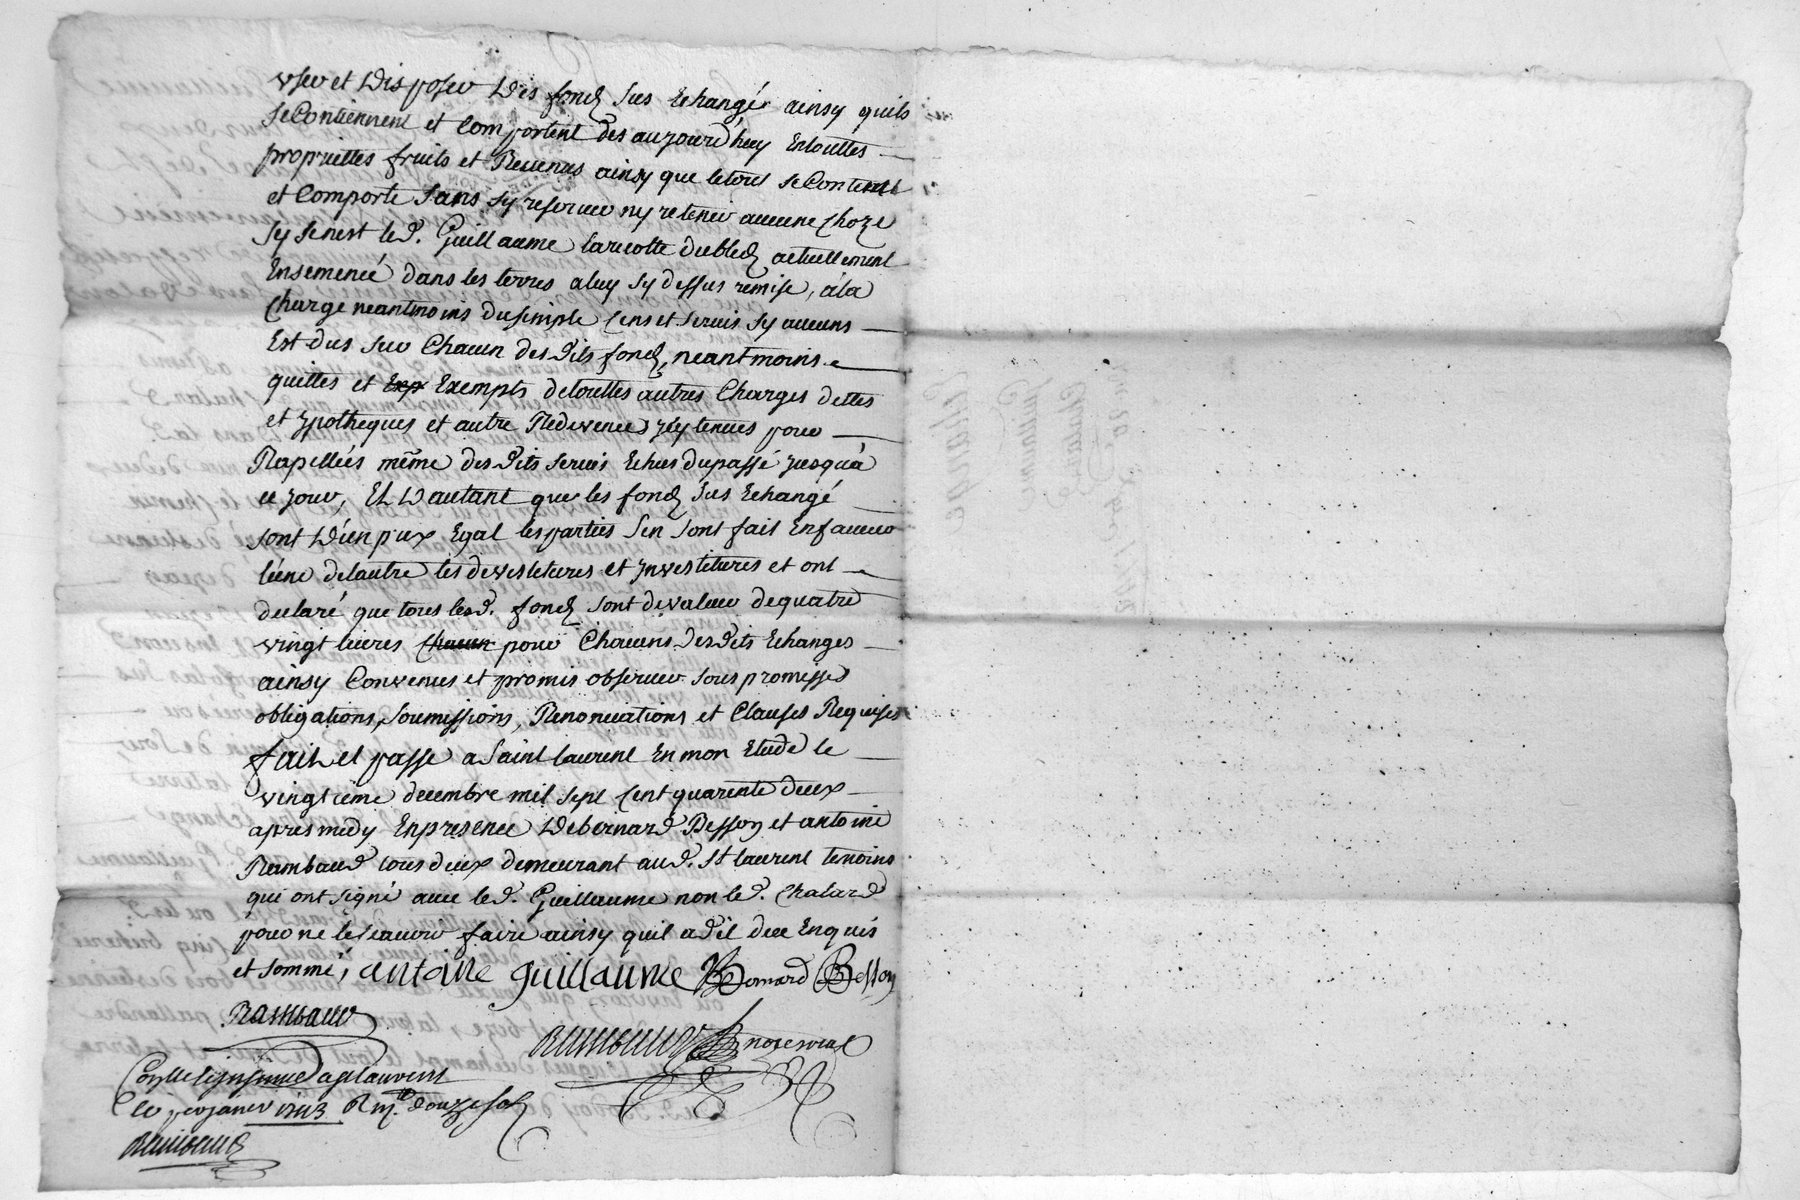 user et disposer des fond sus Echangé ainsy quils
se Contiennent et Comportent des aujourdhuy En touttes
propriettes fruits et Revenus ainsy que le tout se Contient
et Comporte sans sy reserver ny retenir aucune choze
sy senest led. Guillaume la recolte du bled actuellement
Ensemencé dans les terres a luy sy dessus remise, a la
Charge neantmoins du simple Cens et servis sy aucuns
Est dus sur Chacun des dits fond, neantmoins
quittes et Exp Exempts de touttes autres Charges dettes
et ypotheques et autre Redevences jcy tenues pour
Rapellées même des dits servis Echus du passé jusqua
ce jour, Et Dautant que les fond sus Echangé
sont Dĕn prix Egal les parties sen sont fait En faveur
lune de lautre les devestitures et jnvestitures et ont
declaré que tous lesd. fond sont de valeur de quatre
vingt livres chacun pour Chacuns des dits Echanges
ainsy Convenus et promis observer sous promisses
obligations, soumissions, Renonciations et Clauses Requises
fait et passe a Saint laurent En mon Etude le
vingtieme decembre mil sept Cent quarente deux
apres midy En presence De bernard Besson et antoine
Rambaud tous deux demeurant aud. St laurent temoins
qui ont signé avec led. Guillaume non led. Chalard
pour ne le scavoir faire ainsy quil a dit de ce Enquis
et sommé, antoine guillaume Bernard Besson
Rambaud
Rambaud nore royal
Conlle Insinué a St laurent
le janvier 1743 R m.t douze sols
Rambaud